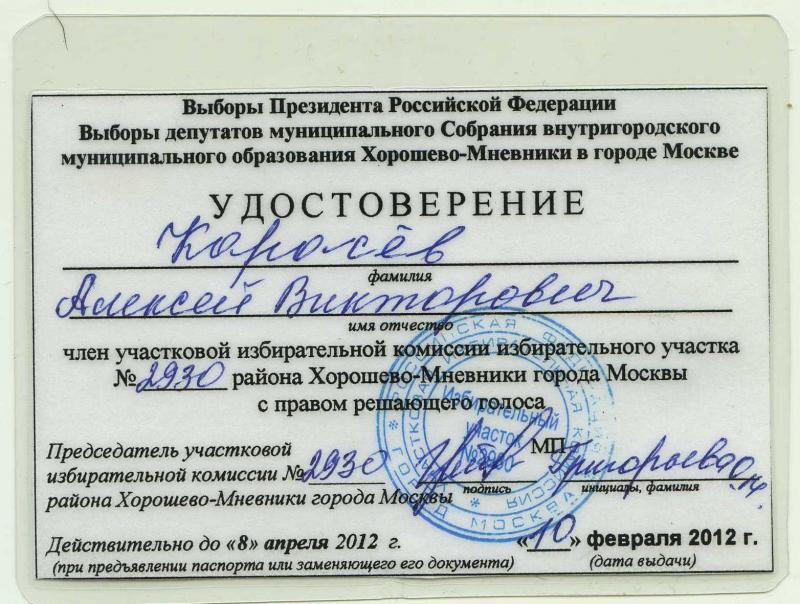 Выборы Президента Российской Федерации
Выборы депутатов муниципального Собрания внутригородского
муниципального образования Хорошево-Мневники в городе Москве
УДОСТОВЕРЕНИЕ
Королёв
фамилия
Алексей Викторович
имя отчество
член участковой избирательной комиссии избирательного участка
№ 2930 района Хорошево-Мневники города Москвы
с правом решающего голоса
Избирательный
участок
№2930
Председатель участковой
МП
избирательной комиссии № 2930
Григорьева О.М.
района Хорошево-Мневники города Москвы
подпись
инициалы, фамилия
Действительно до «8» апреля 2012 г.
«10» февраля 2012 г.
(при предъявлении паспорта или заменяющего его документа)
(дата выдачи)